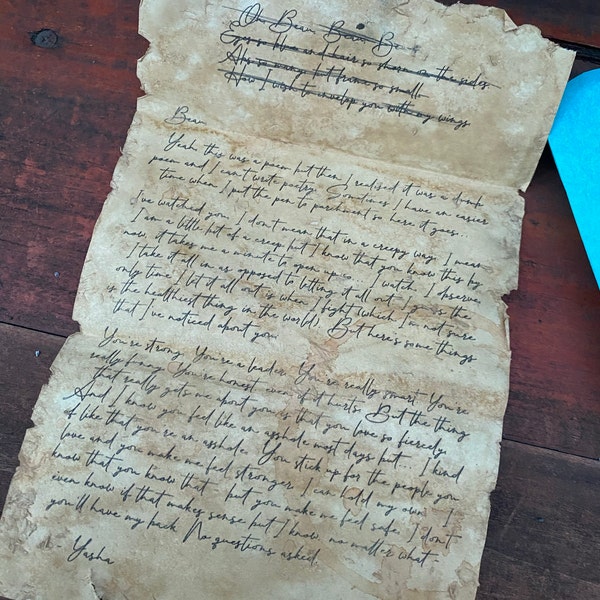 Oh Beau, Beau Be
Eyes so blue and hair so shorn on the sides
Abs so wavy, but frame so small
How I wish to envelop you with my wings
Beau
Yeah, this was a poem but then I realised it was a dumb
poem and I can't write poetry. Sometimes I have an easier
time when I put the pen to parchment so here it goes.
I've watched you. I don't mean that in a creepy way. I mean,
I am a little bit of a creep but I know that you know this by
now, it takes me a minute to open up so... I watch. I observe.
I take it all in as opposed to letting it all out. I the
only time I let it all out is when I fight (which I'm not sure
is the healthiest thing in the world). But here's some things
that I've noticed about you
You're strong. You're a leader. You're really smart. You're
really funny. You're honest, even if it hurts. But the thing
that really gets me about you is that you love so fiercely.
And I know you feel like an asshole most days but... I kind
of like that you're an asshole. You stick up for the people you
love and you make me feel stronger. I can hold my own - I
know that you know that - but you make me feel safe. I don't
even know if that makes sense but I know, no matter what
you'll have my back. No questions asked.
- Yasha